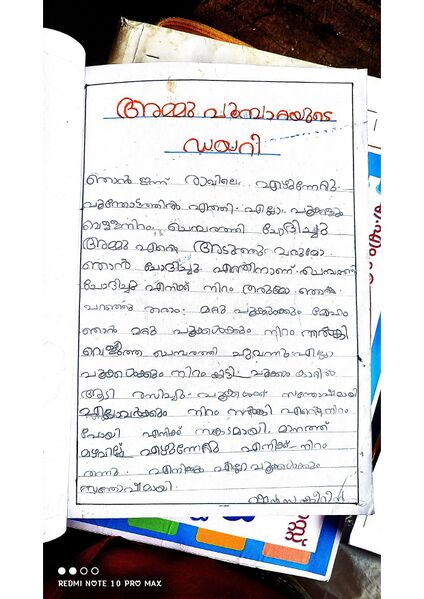 അമ്മു പൂമ്പാറ്റയുടെ
ഡയറി
ഞാൻ ഇന്ന് രാവിലെ എഴുന്നേറ്റു.
പൂന്തോട്ടത്തിൽ എത്തി. എല്ലാ പൂക്കളും
വെള്ളനിറം ചെമ്പരത്തി ചോദിച്ചു
അമ്മു എന്റെ അടുത്തു വരുമോ
ഞാൻ ചോദിച്ചു എന്തിനാണ് ചെമ്പരത്തി
ചോദിച്ചു എനിക്ക് നിറം തരുമോ ഞാൻ
പറഞ്ഞു തരാം. മറ്റു പൂക്കൾക്കും വേണം
ഞാൻ മറ്റു പൂക്കൾക്കും നിറം നൽകി
വെളുത്ത ചെമ്പരത്തി ചുവന്നു എല്ലാ
പൂക്കൾക്കും നിറം കിട്ടി പൂക്കൾ കാറ്റിൽ
ആടി രസിച്ചു പൂക്കൾക്ക് സന്തോഷമായി
എല്ലാവർക്കും നിറം നൽകി എന്റെ നിറം
പോയി എനിക്ക് സങ്കടമായി. മാനത്ത്
മഴവില്ല് എഴുന്നേറ്റു എനിക്ക് നിറം
തന്നു. എനിക്കും എല്ലാ പൂക്കൾക്കും
സന്തോഷമായി.
REDMI NOTE 10 PRO MAX